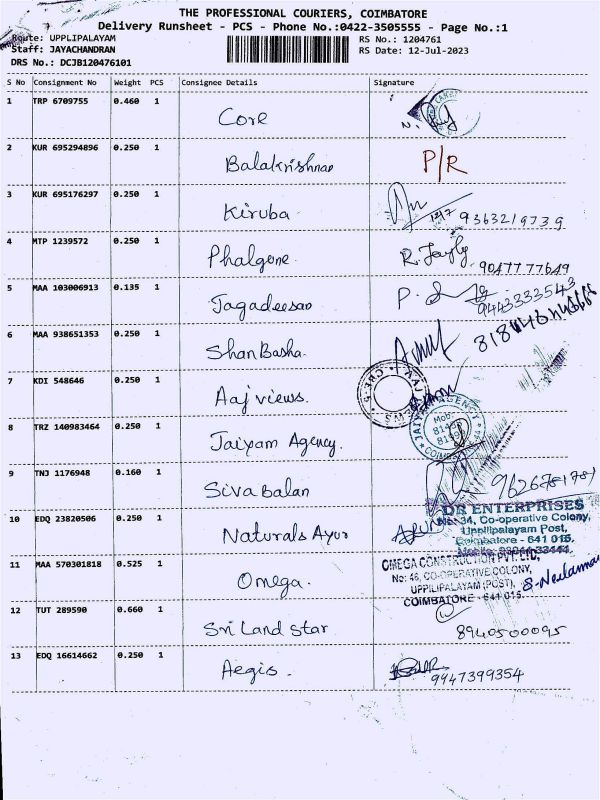 THE PROFESSIONAL COURIERS, COIMBATORE
Delivery Runsheet - PCS - Phone No.:0422-3505555 - Page No.:1
Route: UPPLIPALAYAM
RS No.: 1204761
Staff: JAYACHANDRAN
RS Date: 12-Jul-2023
DRS No.: DCJB120476101
S No Consignment No Weight PCS Consignee Details Signature
1 TRP 6709755 0.460 1 Core
2 KUR 695294896 0.250 1 Balakrishnan P/R
3 KUR 695176297 0.250 1 Kiruba 9363219739
4 MTP 1239572 0.250 1 Phalgone 9047777649
5 MAA 103006913 0.135 1 Jagadeesan 9443333543
6 MAA 938651353 0.250 1 Shan Basha
7 KDI 548646 0.250 1 Aaj views.
8 TRZ 140983464 0.250 1 Jaiyam Agency.
9 TNJ 1176948 0.160 1 Siva balan 9626781781
DR ENTERPRISES
No: 34, Co-operative Colony,
Uppilipalayam Post,
Coimbatore - 641 015.
10 EDQ 23820506 0.250 1 Naturals Ayur
11 MAA 570301818 0.525 1 Omega.
OMEGA CONSTRUCTION PVT. LTD,
No: 46, CO-OPERATIVE COLONY,
UPPILIPALAYAM (POST),
COIMBATORE - 641 015
12 TUT 289590 0.660 1 Sri Land Star 8940500095
13 EDQ 16614662 0.250 1 Aegis. 9947399354